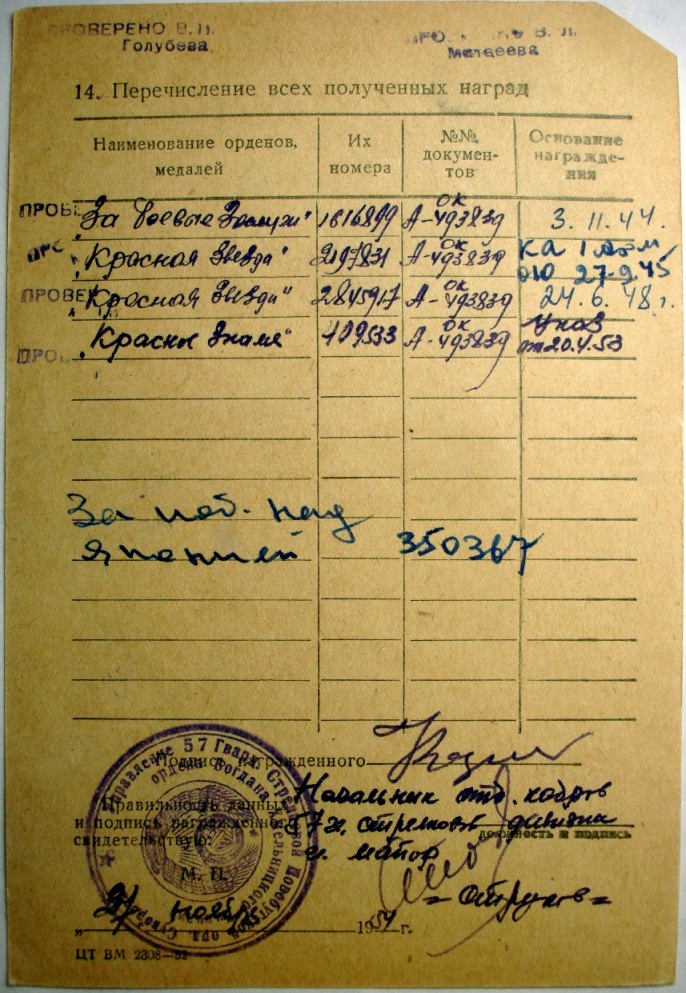 ПРОВЕРЕНО В. П.
Голубева
В. Л.
Матвеева
14. Перечисление всех полученных наград
Наименование орденов, медалей
Их номера
№№ документов
Основание награждения
ПРОВЕ „За боевые Заслуги" 1616899 А-ОК 493839 3.11.44.
„Красная Звезда" 2197831 А-ОК 493839 КА 1 27.9.45
ПРОВЕ „Красная Звезда" 2845917 А-ОК 493839 24.6.48г.
ПРО „Красное Знамя" 409533 А-ОК 493839 Указ от 20.4.53
За поб. над
Японией 350367
Подпись награжденного
Правильность данных
и подпись награжденного
свидетельствую:
Начальник отд. кадров
57 гв. стрелковой дивизии
должность и подпись
гв. майор
М. П.
Управление 57 Гвард. Стрелковой Новобугской орд. Суворова
ордена Богдана Хмельницкого
„ 27 ноябр 1954 г.
ЦТ ВМ 2308—52